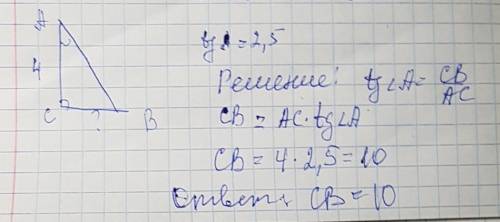 A
4
C
?
B
tg A = 2,5
Решение: tg∠A = CB/AC
CB = AC · tg∠A
CB = 4 · 2,5 = 10
Ответ: CB = 10